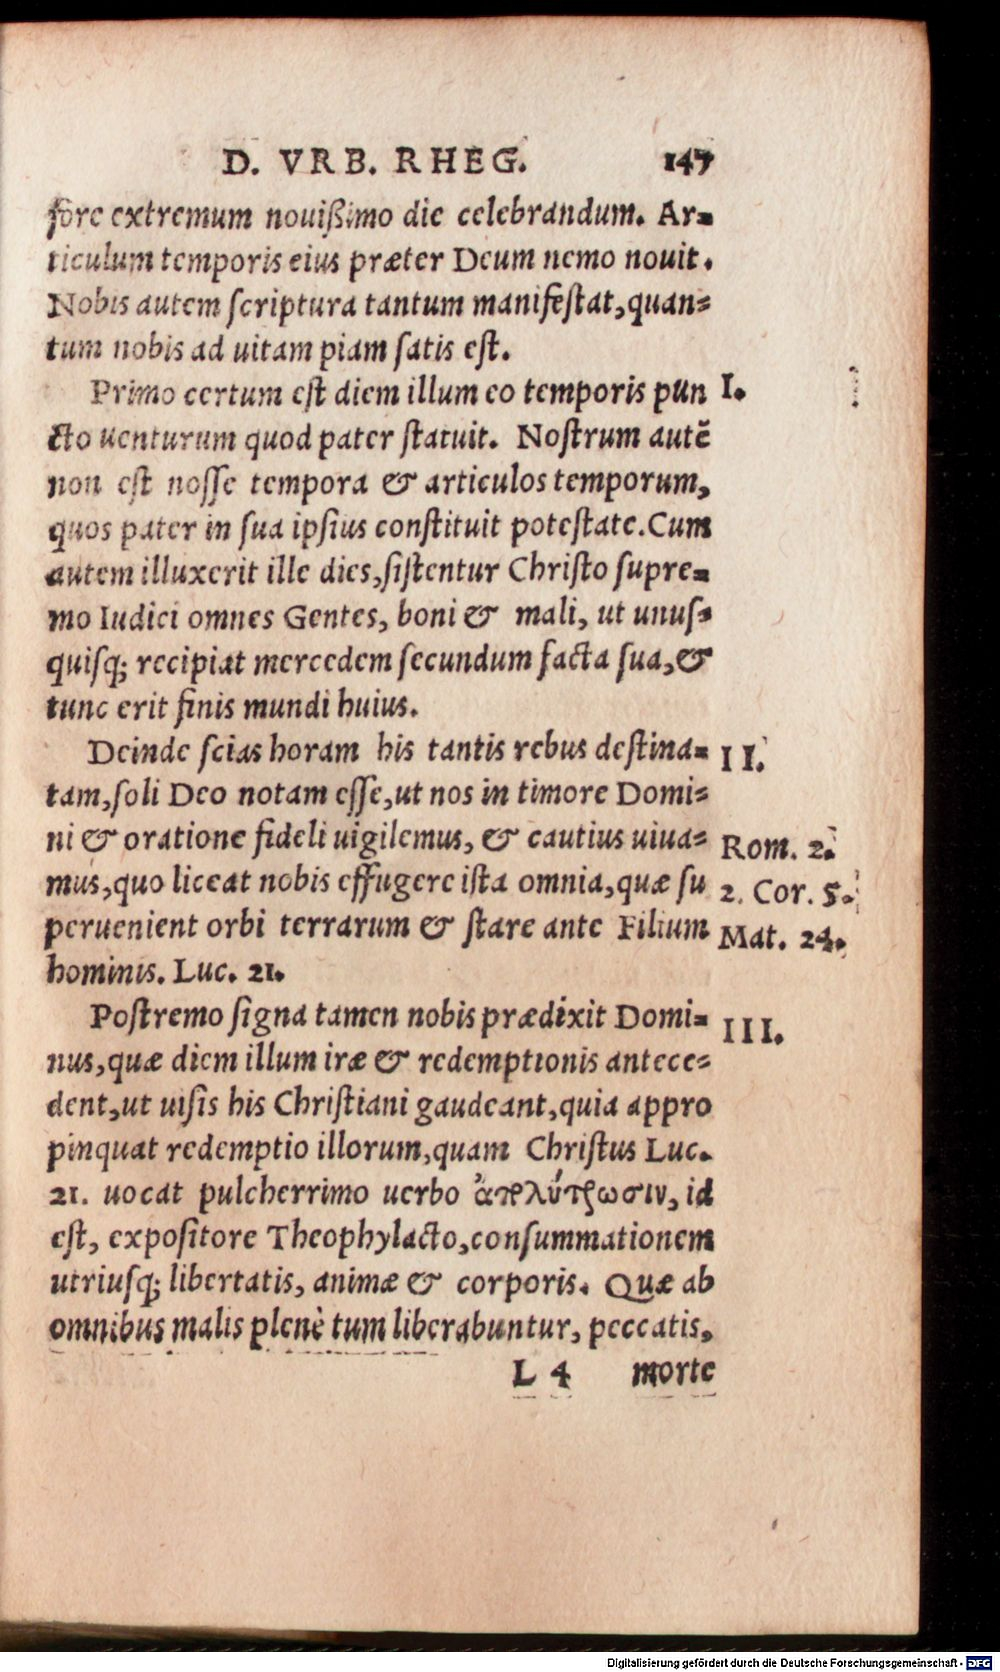 D. VRB. RHEG. 147
fore extremum nouißimo die celebrandum. Ar-
ticulum temporis eius præter Deum nemo nouit.
Nobis autem ſcriptura tantum manifeſtat, quan-
tum nobis ad uitam piam ſatis eſt.
Primo certum eſt diem illum eo temporis pun I.
cto uenturum quod pater ſtatuit. Noſtrum autē
non eſt noſſe tempora & articulos temporum,
quos pater in ſua ipſius conſtituit poteſtate. Cum
autem illuxerit ille dies, ſiſtentur Chriſto ſupre-
mo Iudici omnes Gentes, boni & mali, ut unuſ-
quiſq; recipiat mercedem ſecundum facta ſua, &
tunc erit finis mundi huius.
Deinde ſcias horam his tantis rebus deſtina- II.
tam, ſoli Deo notam eſſe, ut nos in timore Domi-
ni & oratione fideli uigilemus, & cautius uiua- Rom. 2.
mus, quo liceat nobis effugere iſta omnia, quæ ſu 2. Cor. 5.
peruenient orbi terrarum & ſtare ante Filium Mat. 24.
hominis. Luc. 21.
Poſtremo ſigna tamen nobis prædixit Domi- III.
nus, quæ diem illum iræ & redemptionis antece-
dent, ut uiſis his Chriſtiani gaudeant, quia appro
pinquat redemptio illorum, quam Chriſtus Luc.
21. uocat pulcherrimo uerbo ἀπολύτρωσιν, id
eſt, expoſitore Theophylacto, conſummationem
utriuſq; libertatis, animæ & corporis. Quæ ab
omnibus malis plenè tum liberabuntur, peccatis,
L 4 morte
Digitalisierung gefördert durch die Deutsche Forschungsgemeinschaft - DFG